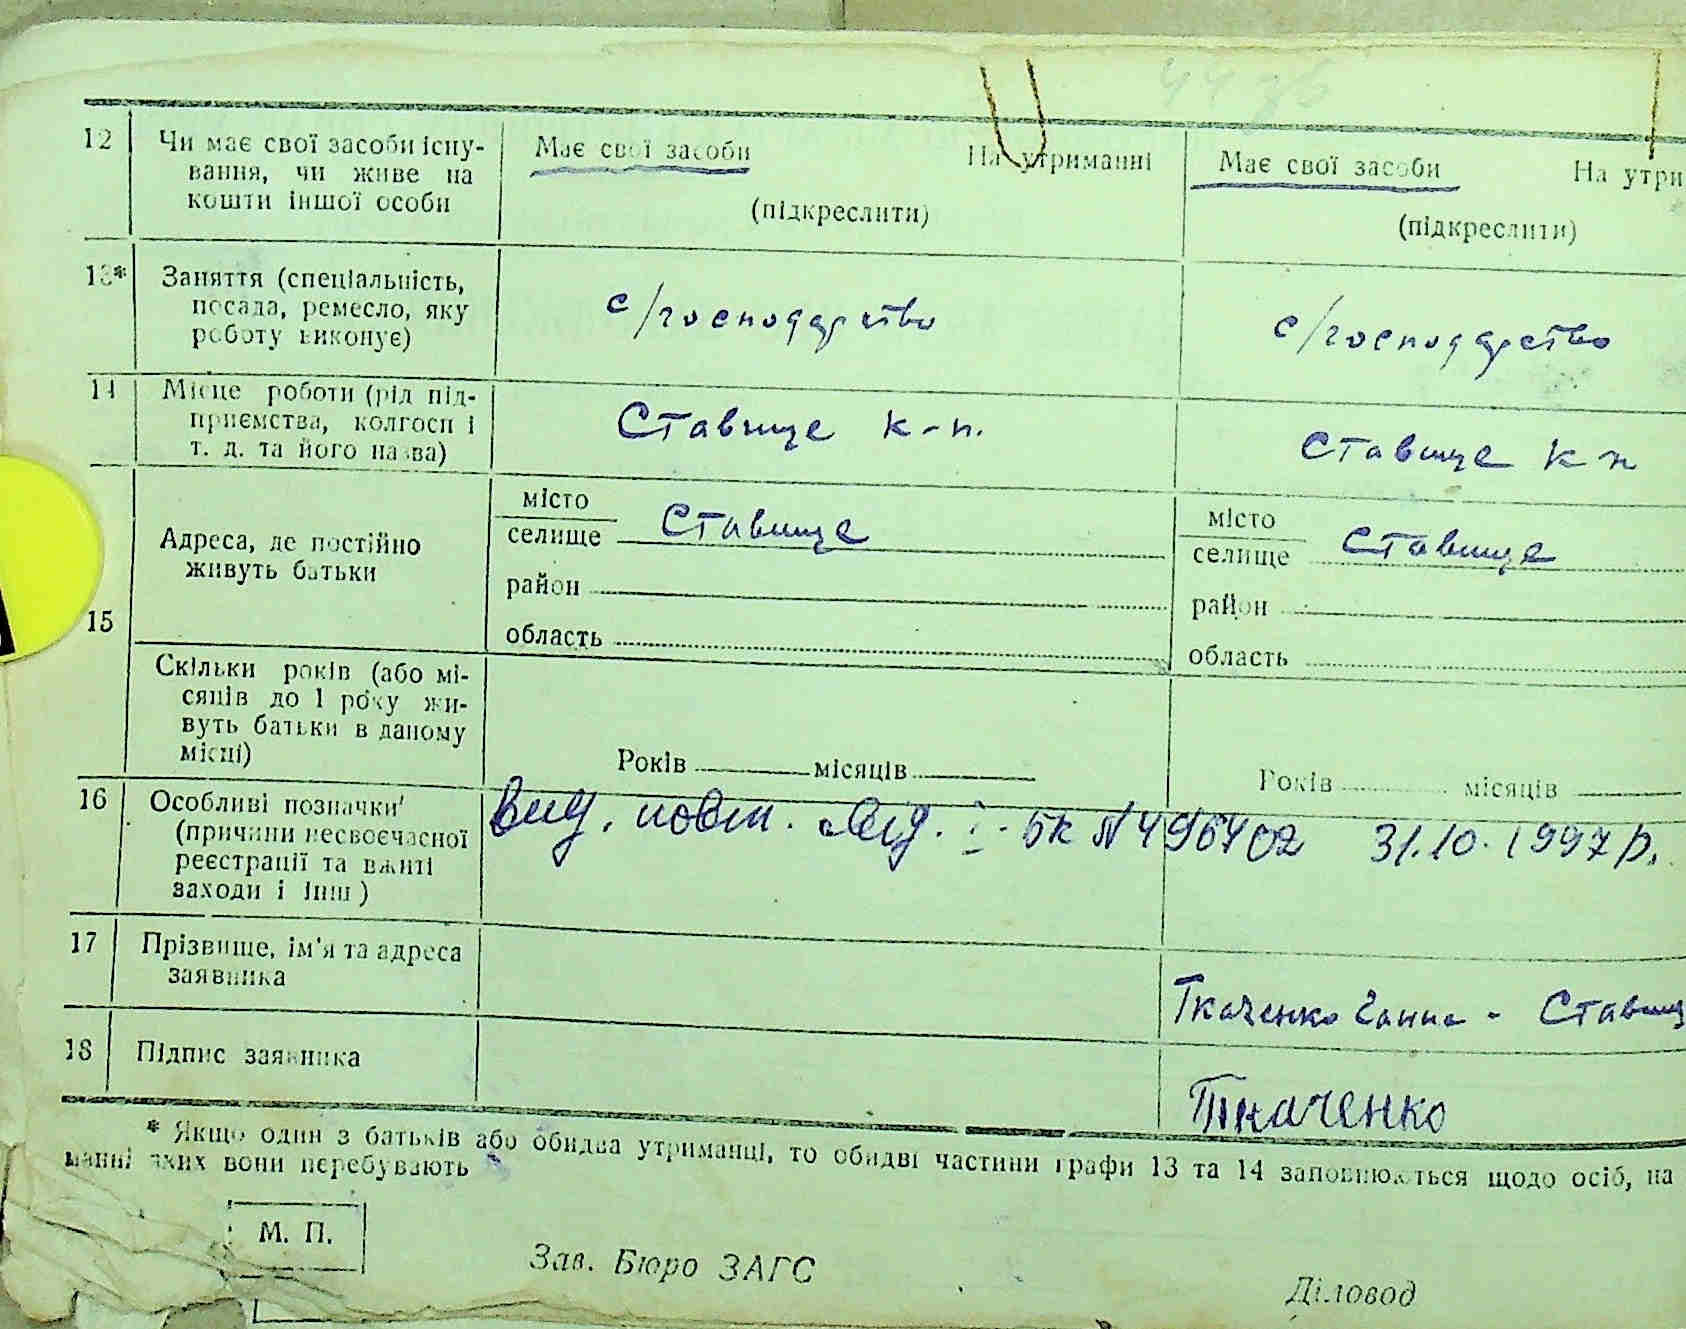 12 Чи має свої засоби існу- Має свої засоби На утриманні Має свої засоби На утри
вання, чи живе на
кошти іншої особи (підкреслити) (підкреслити)
13* Заняття (спеціальність,
посада, ремесло, яку с/господарство с/господарство
роботу виконує)
14 Місце роботи (рід під-
приємства, колгосп і Ставище к-п. Ставище к-п
т. д. та його назва)
15 Адреса, де постійно
живуть батьки
місто місто
селище Ставище селище Ставище
район район
область область
Скільки років (або мі-
сяців до 1 року жи-
вуть батьки в даному
місці) Років місяців Років місяців
16 Особливі позначки вид. повт. свід. І-БК № 496402 31.10.1997 р.
(причини несвоєчасної
реєстрації та вжиті
заходи і інш)
17 Прізвище, ім'я та адреса
заявника Ткаченко Ганна - Ставищ
18 Підпис заявника Ткаченко
* Якщо один з батьків або обидва утриманці, то обидві частини графи 13 та 14 заповнюються щодо осіб, на
манні яких вони перебувають
М. П.
Зав. Бюро ЗАГС
Діловод